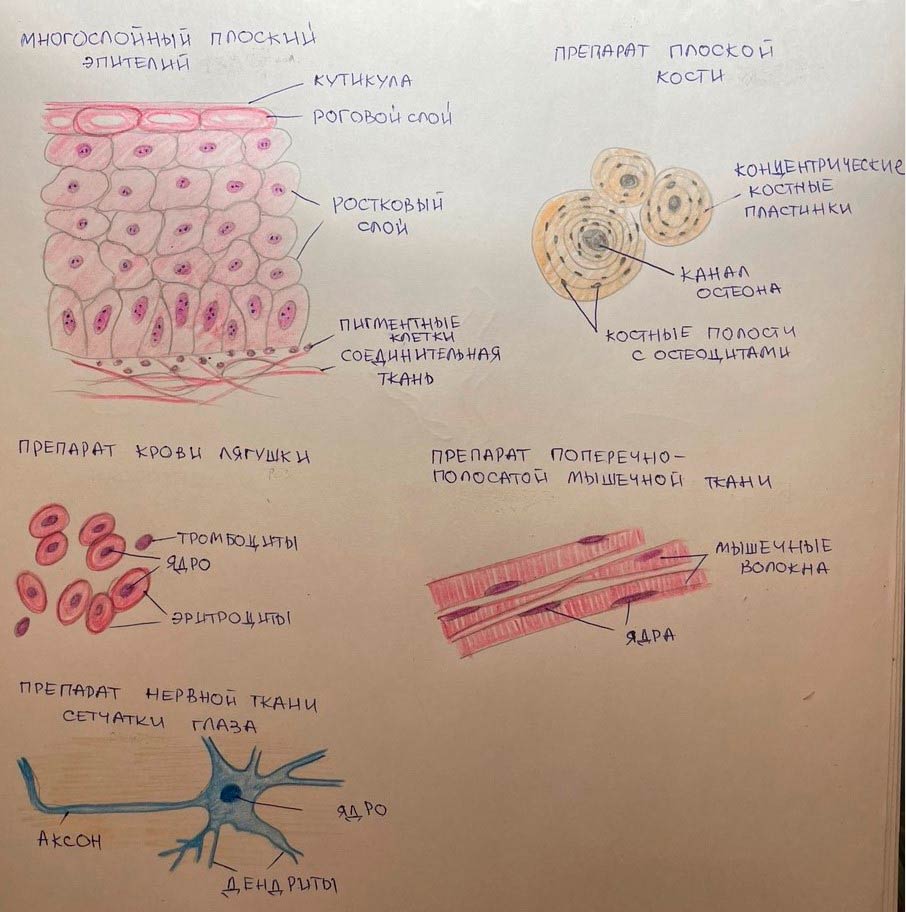 МНОГОСЛОЙНЫЙ ПЛОСКИЙ
ЭПИТЕЛИЙ
КУТИКУЛА
РОГОВОЙ СЛОЙ
РОСТКОВЫЙ
СЛОЙ
ПИГМЕНТНЫЕ
КЛЕТКИ
СОЕДИНИТЕЛЬНАЯ
ТКАНЬ
ПРЕПАРАТ ПЛОСКОЙ
КОСТИ
КОНЦЕНТРИЧЕСКИЕ
КОСТНЫЕ
ПЛАСТИНКИ
КАНАЛ
ОСТЕОНА
КОСТНЫЕ ПОЛОСТИ
С ОСТЕОЦИТАМИ
ПРЕПАРАТ КРОВИ ЛЯГУШКИ
ТРОМБОЦИТЫ
ЯДРО
ЭРИТРОЦИТЫ
ПРЕПАРАТ ПОПЕРЕЧНО-
ПОЛОСАТОЙ МЫШЕЧНОЙ ТКАНИ
МЫШЕЧНЫЕ
ВОЛОКНА
ЯДРА
ПРЕПАРАТ НЕРВНОЙ ТКАНИ
СЕТЧАТКИ ГЛАЗА
ЯДРО
АКСОН
ДЕНДРИТЫ